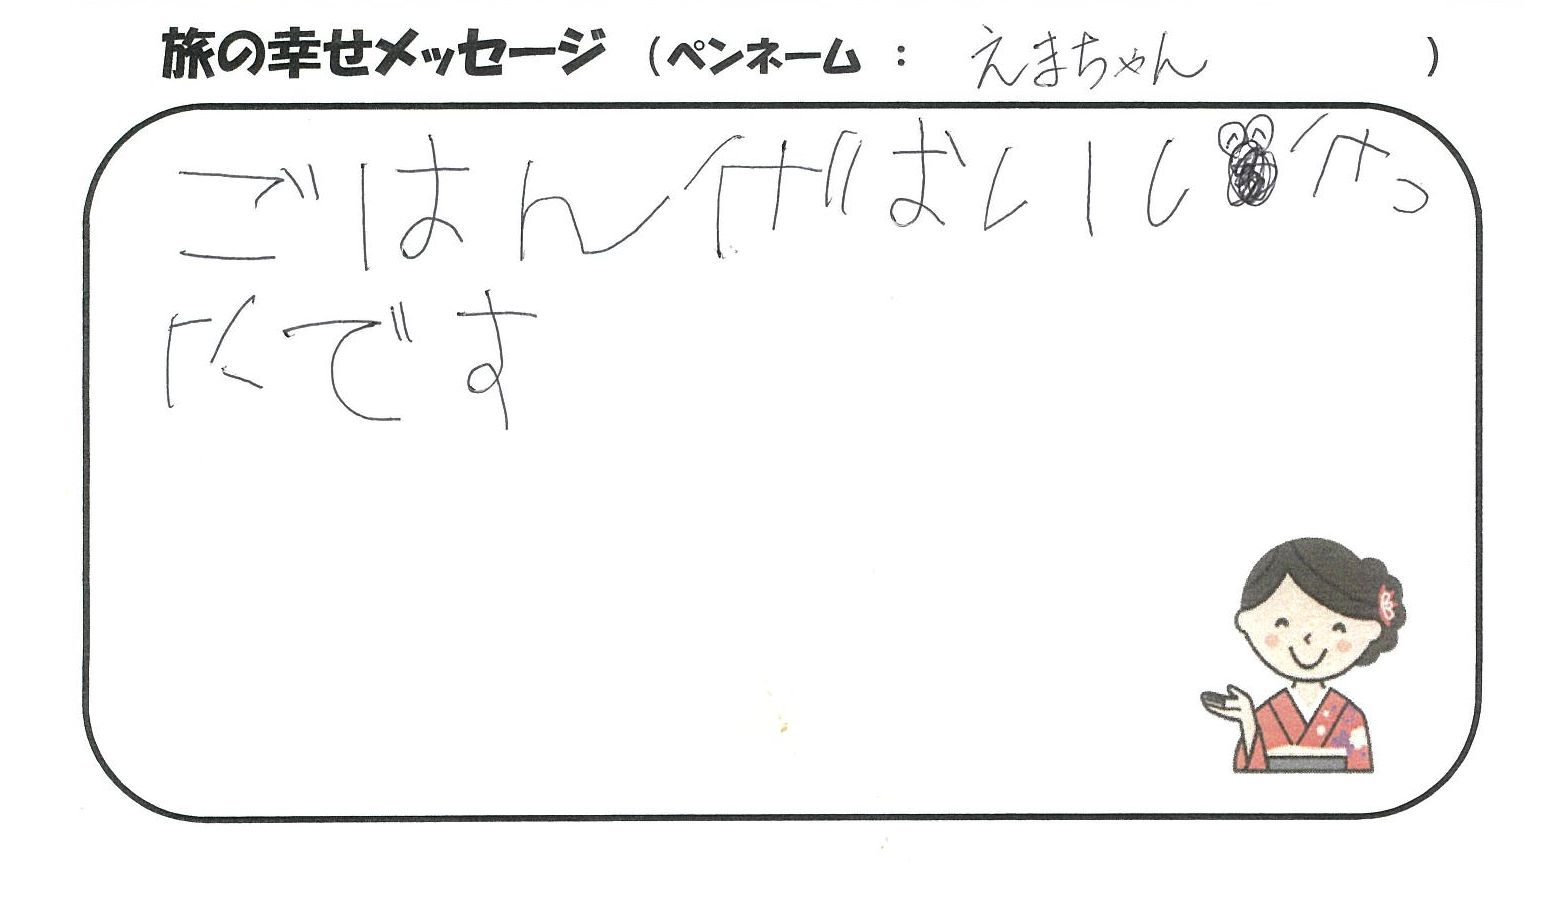 旅の幸せメッセージ (ペンネーム : えまちゃん )
ごはんがおいしかっ
たです